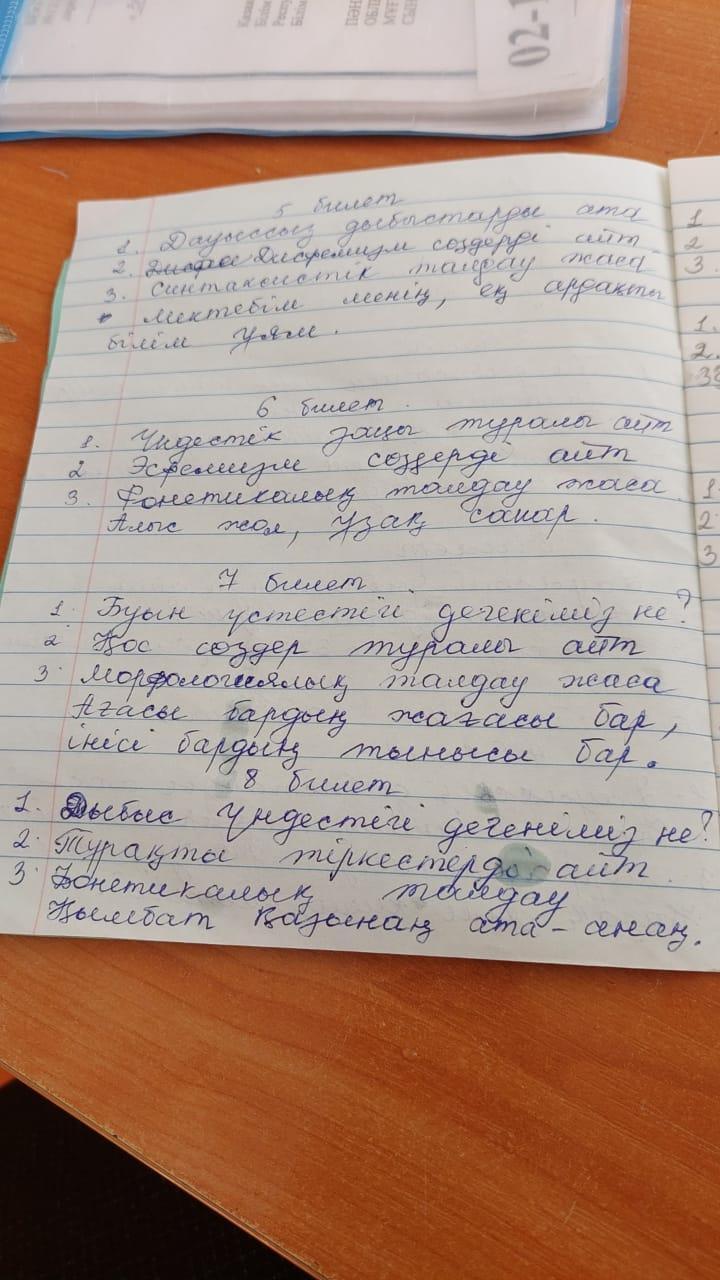 02-1
5 билет
1. Дауыссыз дыбыстарды ата
2. Дисфемизм сөздерді айт
3. Синтаксистік талдау жаса
Мектебім менің, ең ардақты
білім ұям.
6 билет.
1. Үндестік заңы туралы айт
2 Эсфемизм сөздерді айт
3. Фонетикалық талдау жаса.
Алыс жол, ұзақ сапар.
7 билет.
1. Буын үстестігі дегеніміз не?
2 Қос сөздер туралы айт
3. Морфологиялық талдау жаса
Ағасы бардың жағасы бар,
інісі бардың тынысы бар.
8 билет
1. Дыбыс үндестігі дегеніміз не?
2. Тұрақты тіркестерді айт.
3. Фонетикалық талдау
Қымбат қазынаң ата-анаң.